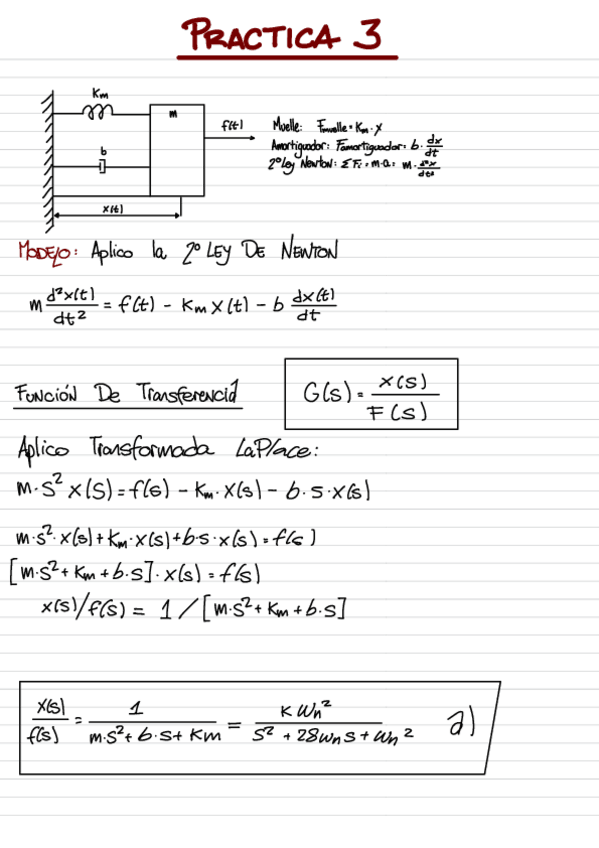 PRACTICA 3
Km
m
f(t)
b
x(t)
Muelle: Fmuelle = Km · x
Amortiguador: Famortiguador = b · dx/dt
2º Ley Newton: Σ Fi = m·a = m · d²x/dt²
MODELO: Aplico la 2º LEY DE NEWTON
m d²x(t)/dt² = f(t) - Km x(t) - b dx(t)/dt
FUNCIÓN DE Transferencia
G(s) = x(s)/F(s)
Aplico Transformada LaPlace:
m·s² x(s) = f(s) - Km·x(s) - b·s·x(s)
m·s²·x(s) + Km·x(s) + b·s·x(s) = f(s)
[m·s² + Km + b·s]·x(s) = f(s)
x(s)/f(s) = 1/[m·s² + Km + b·s]
x(s)/f(s) = 1/(m·s² + b·s + Km) = K Wn²/(s² + 28wns + wn²) a)